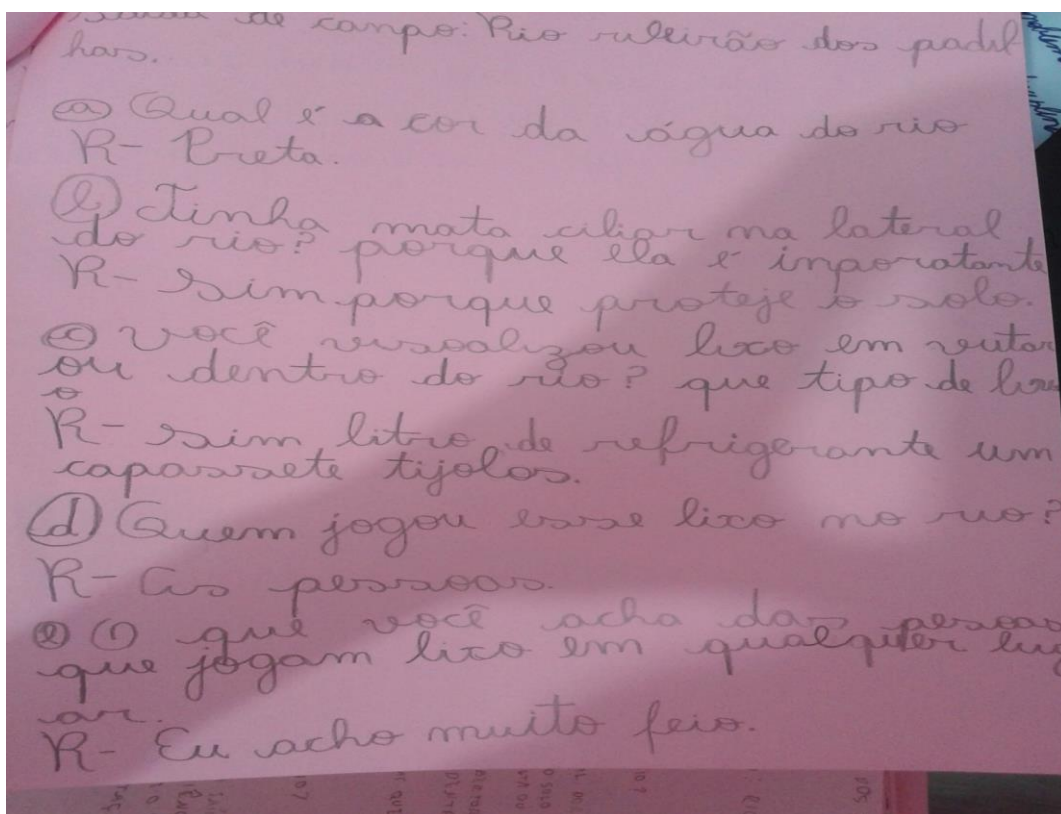 de campo: Rio rileirão dos padil
has.
a) Qual é a cor da água do rio
R- Preta.
b) Tinha mata ciliar na lateral
do rio? porque ela é imporatante
R- Sim. porque proteje o solo.
c) você visoalizou lixo em vutor
ou dentro do rio? que tipo de lix
o
R- sim, litro de refrigerante um
capassete tijolos.
d) Quem jogou esse lixo no rio?
R- As pessoas.
e) O que você acha das pessoas
que jogam lixo em qualquer lug
ar.
R- Eu acho muito feio.